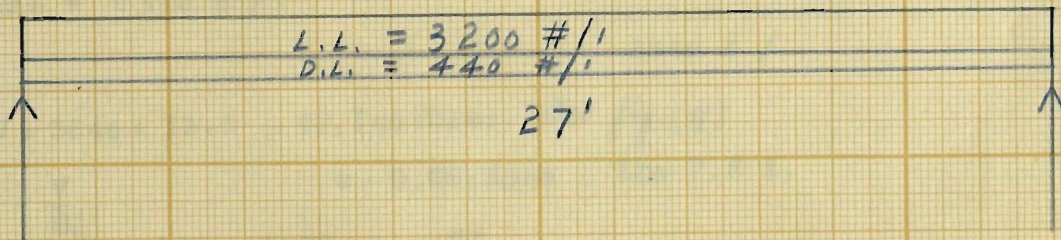 L.L. = 3200 #/'
D.L. = 440 #/'
27'